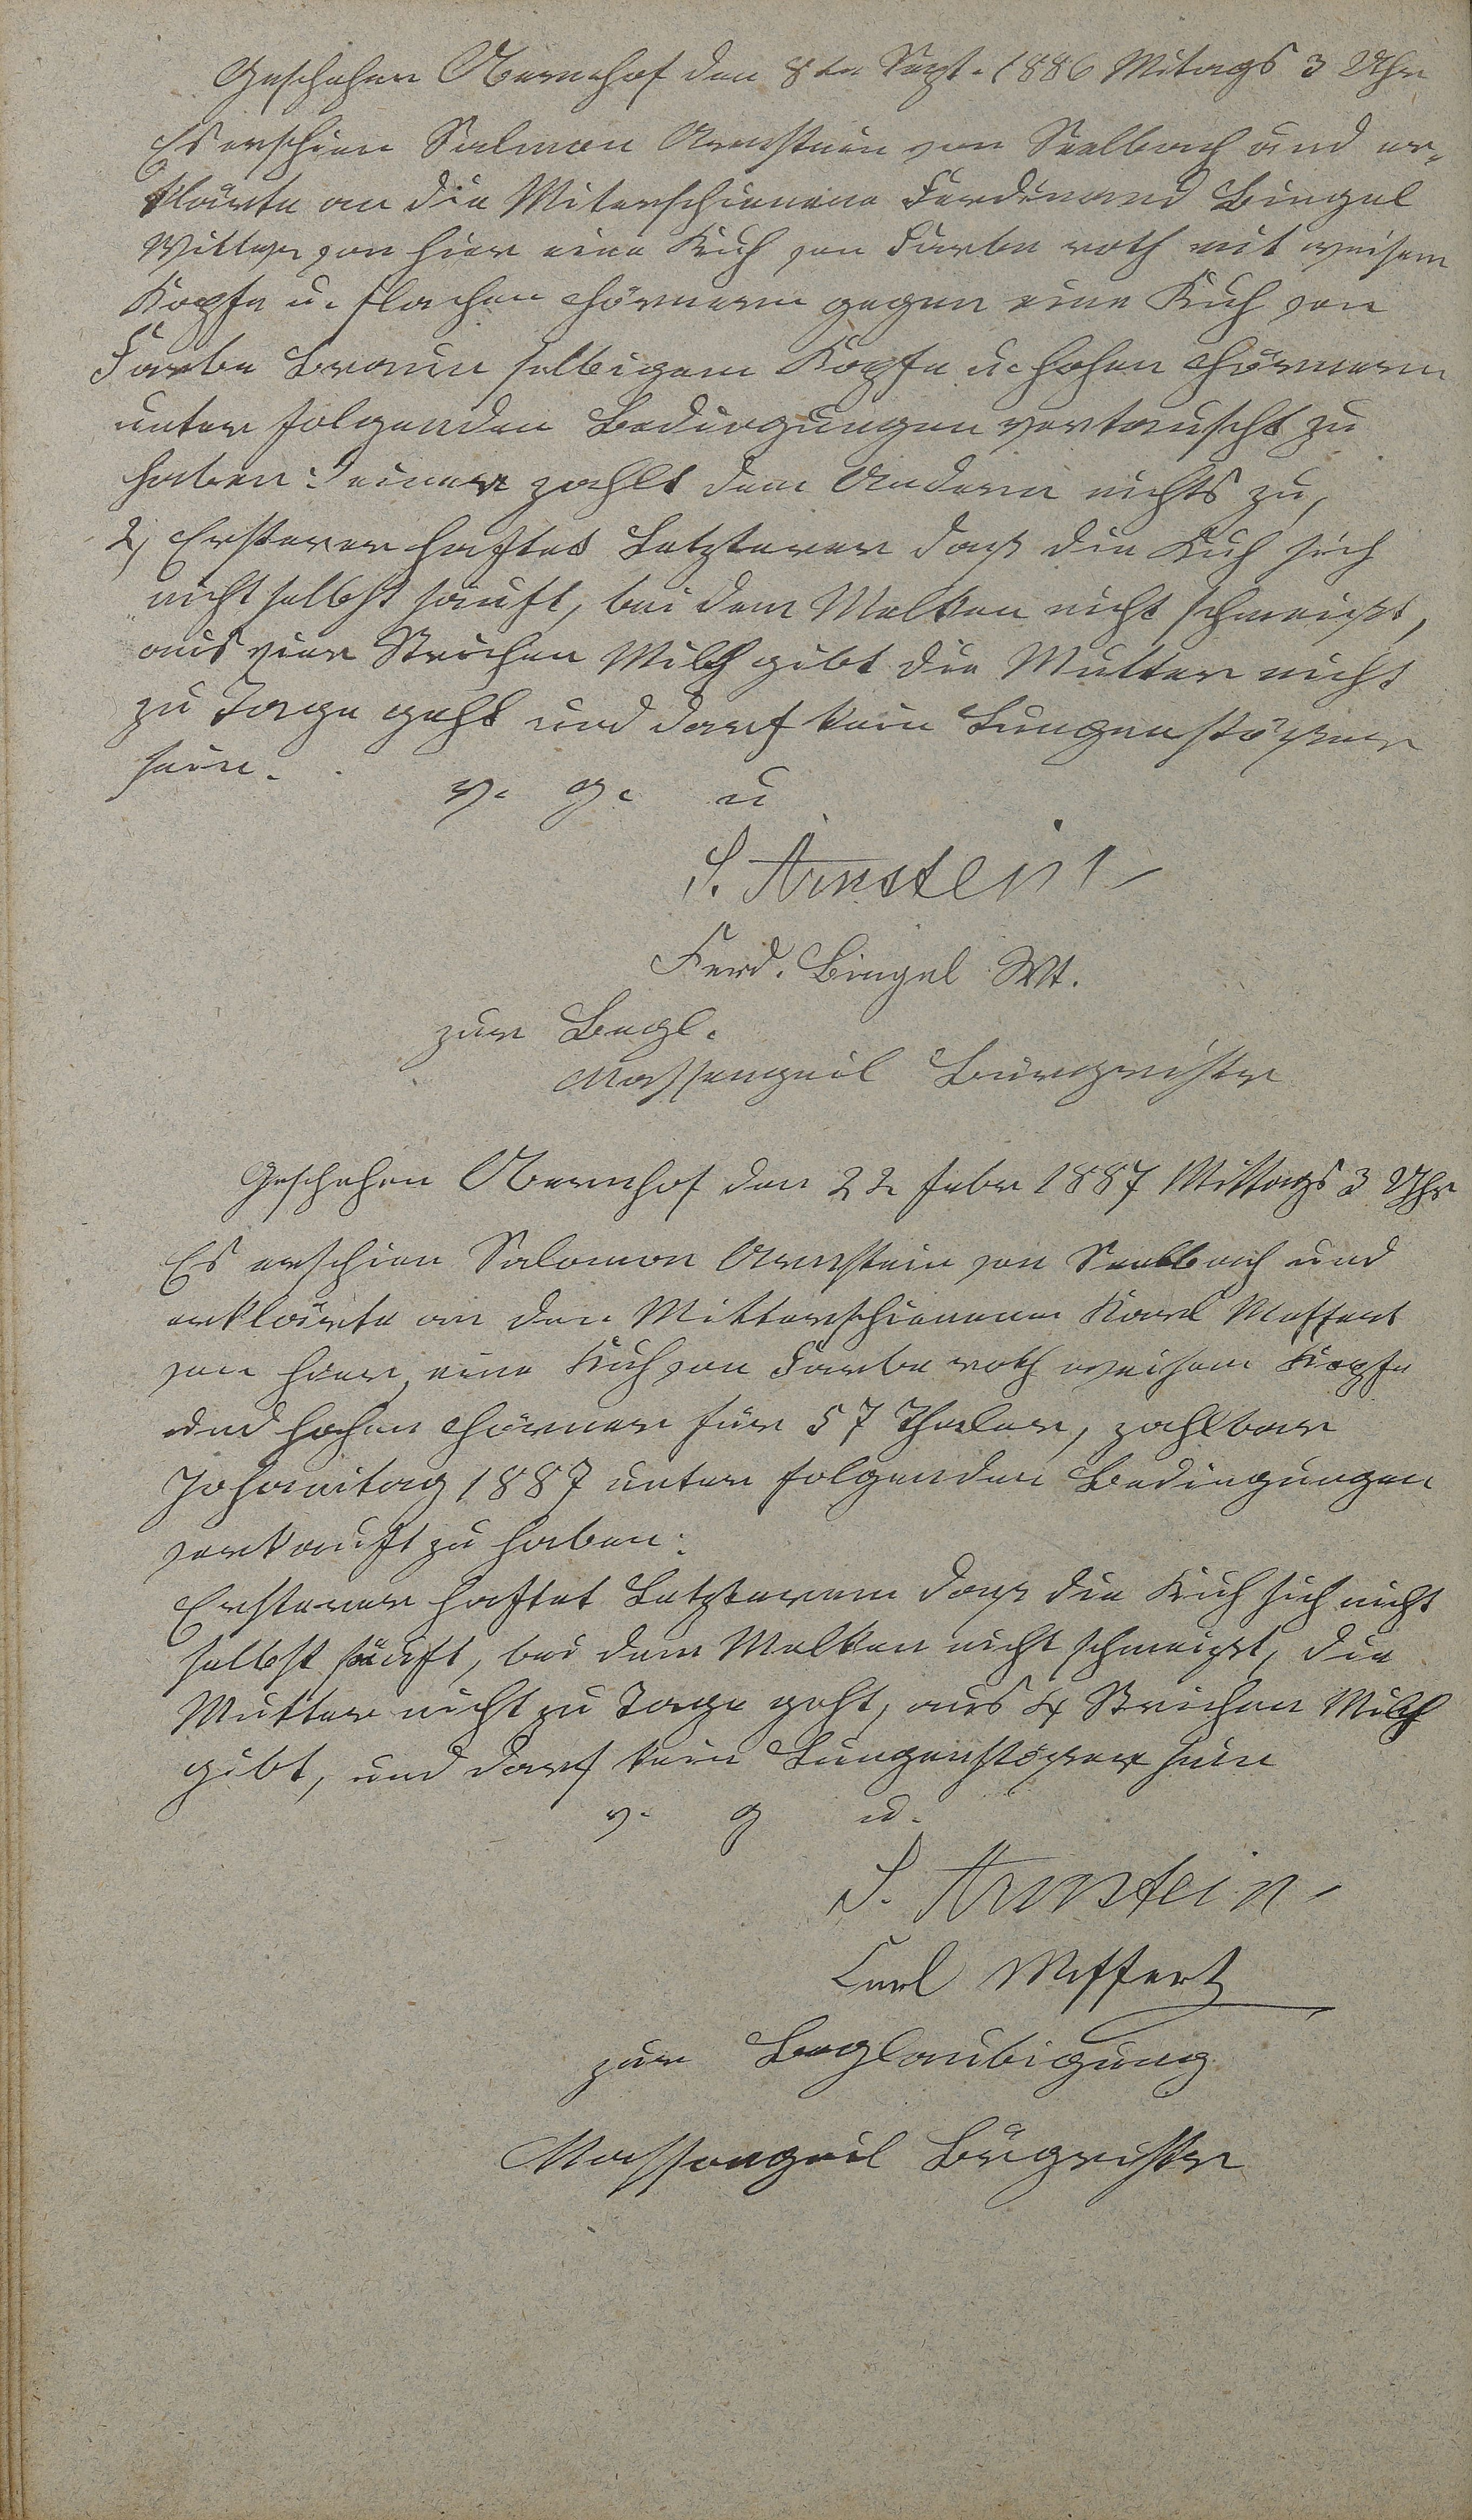 Geschehen Obernhof den 8ten Sept. 1886 Mitags 3 Uhr
Es erschien Salmon Arnstein von Seelbach und er-
klärte an die Miterschienene Ferdinand Bingel
Wittwe von hier eine Kuh von Farbe roth mit weisem
Kopfe u. flachen Hörnern gegen eine Kuh von
Farbe braun selbigem Kopfe u. hohen Hörnern
unter folgenden Bedingungen vertauscht zu
haben: einer zahlt dem Andern nichts zu,
2, Ersterer haftet Letzterer daß die Kuh sich
nicht selbst säuft, bei dem Melken nicht schmeißt,
aus vier Strichen Milch gibt die Mutter nicht
zu Tage geht und darf kein Lungenstößer
sein.
v. g. u
S. Arnstein
Ferd. Bingel Wt.
zur Begl.
Massengeil Bürgmeister
Geschehen Obernhof den 22 Febr 1887 Mittags 3 Uhr
Es erschien Salomon Arnstein von Seelbach und
erklärte an den Mitterschienenen Karl Meffert
von hier, eine Kuh von Farbe roth weisem Kopfe
und hohen Hörner für 57 Thaler, zahlbar
Johannitag 1887 unter folgenden Bedingungen
verkauft zu haben:
Ersterer haftet Letzterem daß die Kuh sich nicht
selbst säuft, bei dem Melken nicht schmeißt, die
Mutter nicht zu Tage geht, aus 4 Strichen Milch
gibt, und darf kein Lungenstößer sein
v. g u.
S. Arnstein
Carl Meffert
zur Beglaubigung
Massengeil Bürgmeister